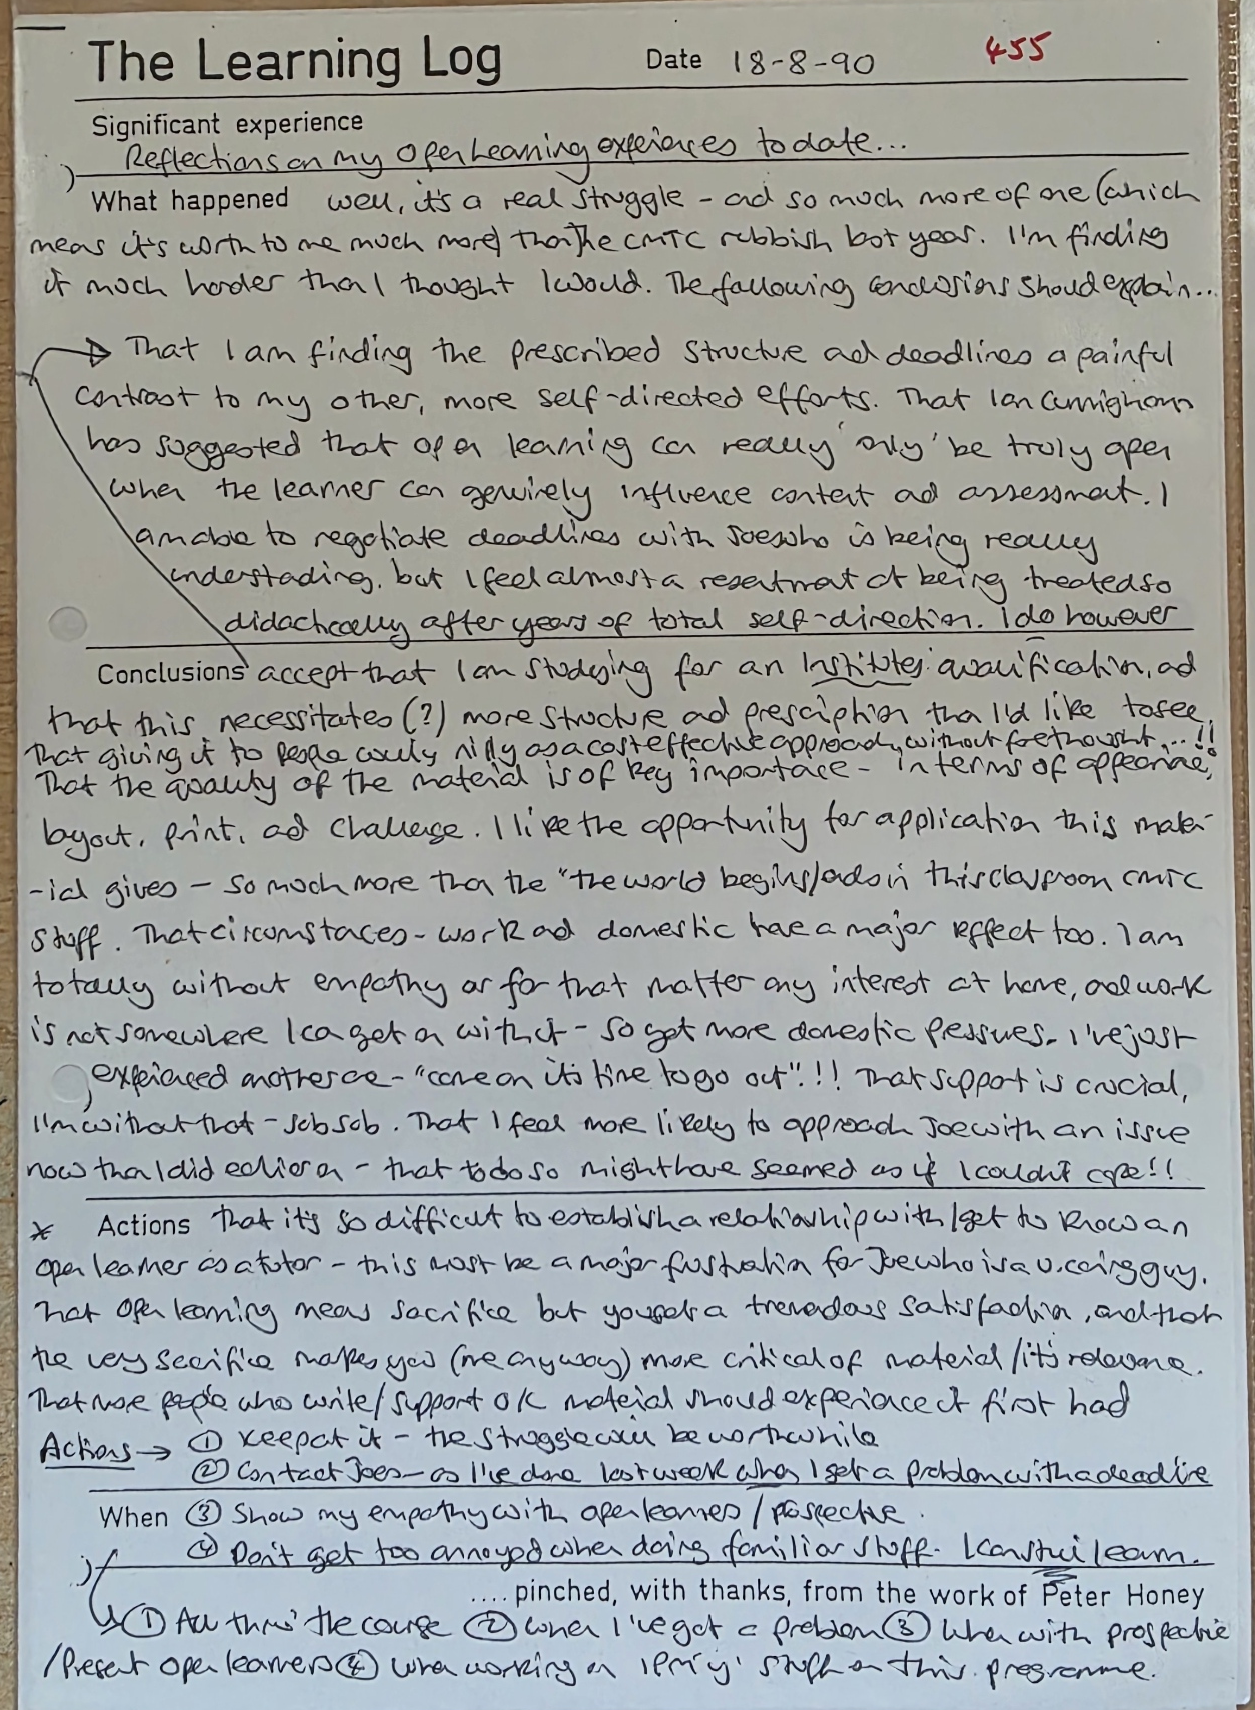 The Learning Log Date 18-8-90 455
Significant experience
Reflections on my Open Learning experiences to date...
What happened well, it's a real struggle - and so much more of one (which
means it's worth to me much more) than the CMTC rubbish last year. I'm finding
it much harder than I thought I would. The following conclusions should explain...
That I am finding the prescribed structure and deadlines a painful
contrast to my other, more self-directed efforts. That Ian Cunningham
has suggested that open learning can really 'only' be truly open
when the learner can genuinely influence content and assessment. I
am able to negotiate deadlines with Joe who is being really
understanding, but I feel almost a resentment at being treated so
didactically after years of total self-direction. I do however
Conclusions accept that I am studying for an Institutes qualification, and
that this necessitates (?) more structure and prescription than I'd like to see.
That giving it to people as a cost effective approach, without forethought...!!
That the quality of the material is of key importance - in terms of appearance,
layout, print, and challenge. I like the opportunity for application this mater-
-ial gives - so much more than the "the world begins/ends in this classroom CMTC
stuff. That circumstances - work and domestic have a major effect too. I am
totally without empathy or for that matter any interest at home, and work
is not somewhere I can get on with it - so get more domestic pressures. I've just
experienced another one - "come on it's time to go out".!! That support is crucial,
I'm without that - sob sob. That I feel more likely to approach Joe with an issue
now than I did earlier on - that to do so might have seemed as if I couldn't cope!!
* Actions that it's so difficult to establish a relationship with/get to know an
open learner as a tutor - this must be a major frustration for Joe who is a v. caring guy.
That Open learning means sacrifice but you get a tremendous satisfaction, and that
the very sacrifice makes you (me anyway) more critical of material/it's relevance.
That more people who write/support O/L material should experience it first hand
Actions → ① Keep at it - the struggle will be worthwhile
② Contact Joe - as I've done last week when I get a problem with a deadline
When ③ Show my empathy with open learners/prospective.
④ Don't get too annoyed when doing familiar stuff. I can still learn.
....pinched, with thanks, from the work of Peter Honey
① All thro' the course ② When I've got a problem ③ When with prospective
/Present open learners ④ When working on 'stuff on this programme.